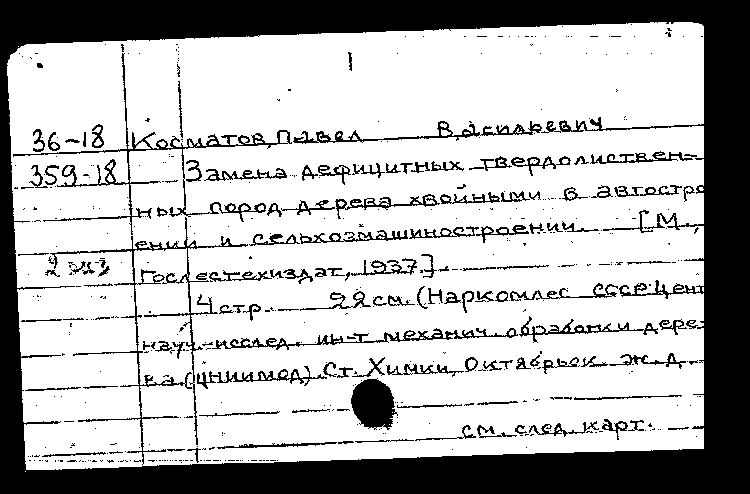 36-18 Косматов, Павел Васильевич
359-18 Замена дефицитных твердолиствен-
ных пород дерева хвойными в автостро
ении и сельхозмашиностроении. [М.,
2 экз Гослестехиздат, 1937].
4 стр. 22 см. (Наркомлес СССР. Цент
науч.-исслед. ин-т механич. обработки дере-
ва (ЦНИИМОД). Ст. Химки, Октябрьск. ж.д.
см. след. карт.